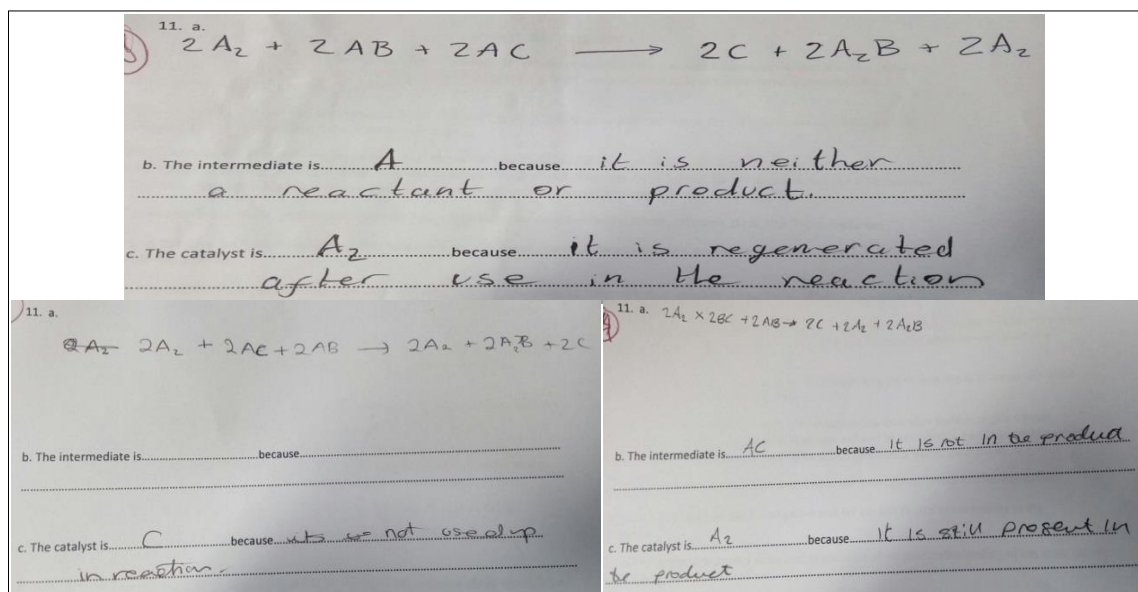 11. a.
2A₂ + 2AB + 2AC ⟶ 2C + 2A₂B + 2A₂
b. The intermediate is......A......because...it is neither
a reactant or product.
c. The catalyst is......A₂......because...it is regenerated
after use in the reaction
11. a.
2A₂ + 2AC + 2AB → 2A₂ + 2A₂B + 2C
b. The intermediate is......because......
c. The catalyst is......C......because...its not used up
in reaction.
11. a. 2A₂ × 2BC + 2AB → 2C + 2A₂ + 2A₂B
b. The intermediate is......AC......because...it is not in the product
c. The catalyst is......A₂......because...It is still present in
the product